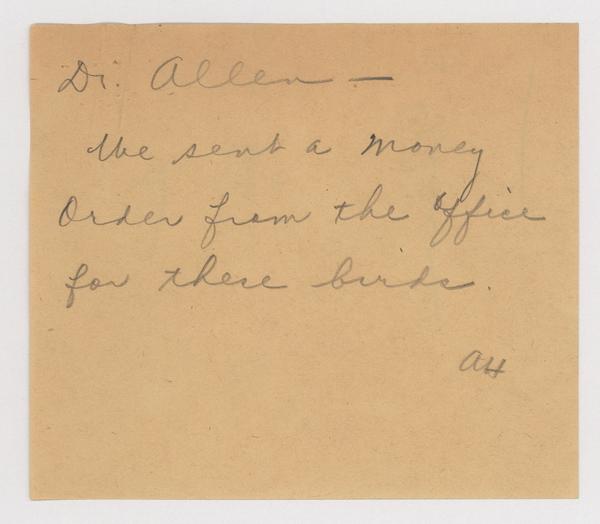 Dr. Allen —
We sent a money
Order from the office
for these birds.
AH